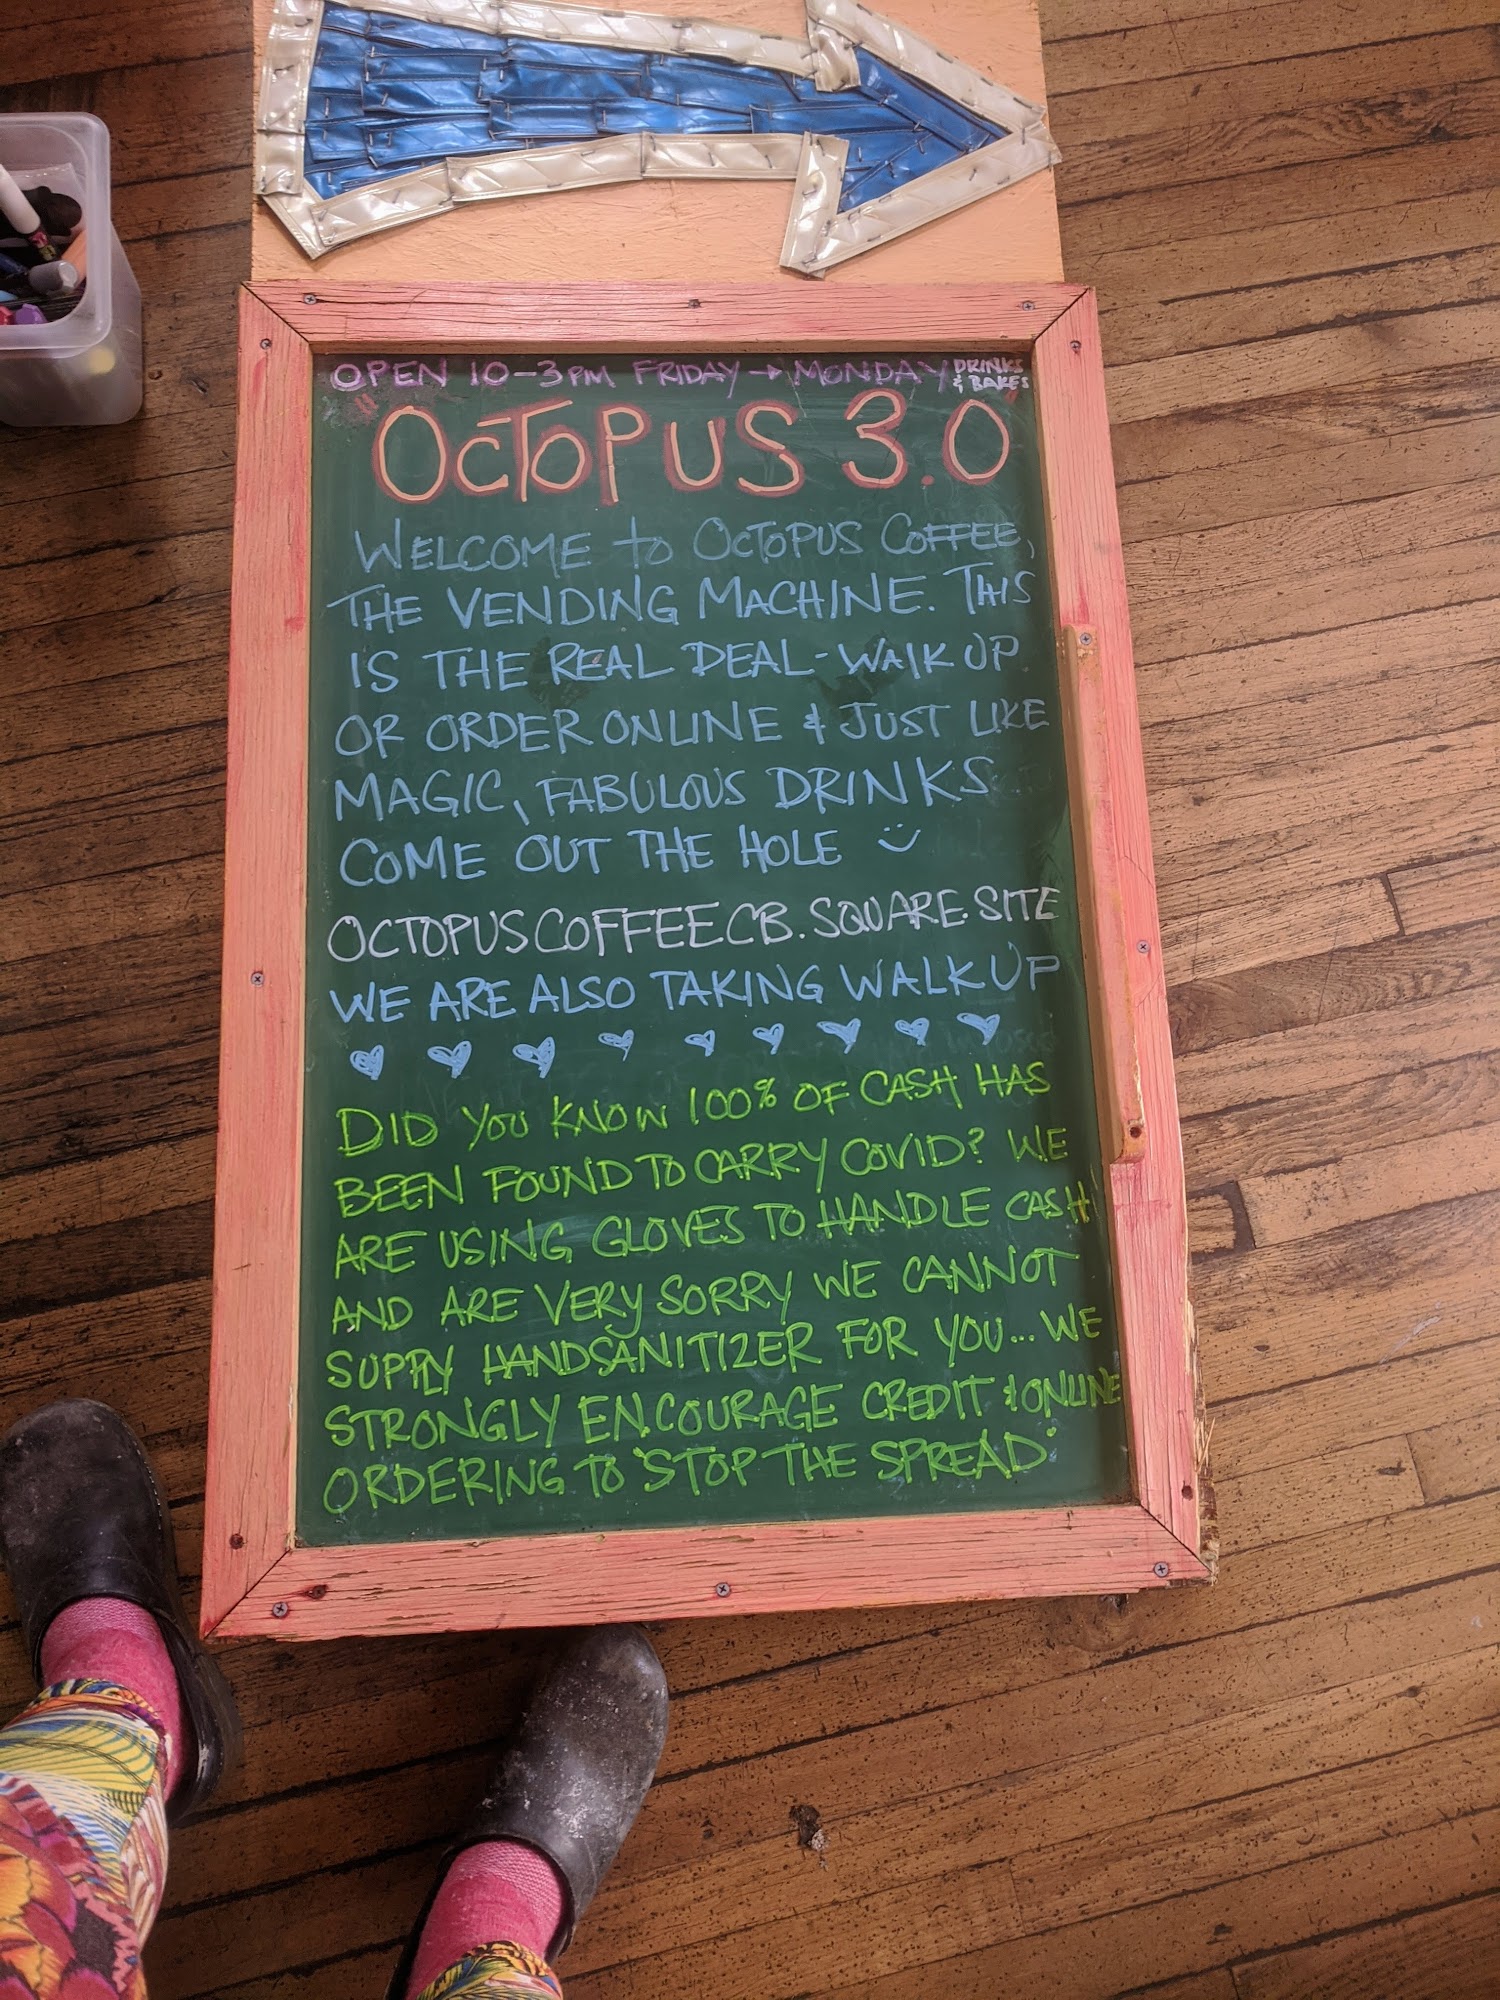 OPEN 10-3PM FRIDAY → MONDAY DRINKS & BAKES
OCTOPUS 3.0
WELCOME TO OCTOPUS COFFEE,
THE VENDING MACHINE. THIS
IS THE REAL DEAL - WALK UP
OR ORDER ONLINE & JUST LIKE
MAGIC, FABULOUS DRINKS
COME OUT THE HOLE
OCTOPUSCOFFEECB.SQUARE.SITE
WE ARE ALSO TAKING WALK UP
DID YOU KNOW 100% OF CASH HAS
BEEN FOUND TO CARRY COVID? WE
ARE USING GLOVES TO HANDLE CASH
AND ARE VERY SORRY WE CANNOT
SUPPLY HANDSANITIZER FOR YOU... WE
STRONGLY ENCOURAGE CREDIT & ONLINE
ORDERING TO "STOP THE SPREAD"